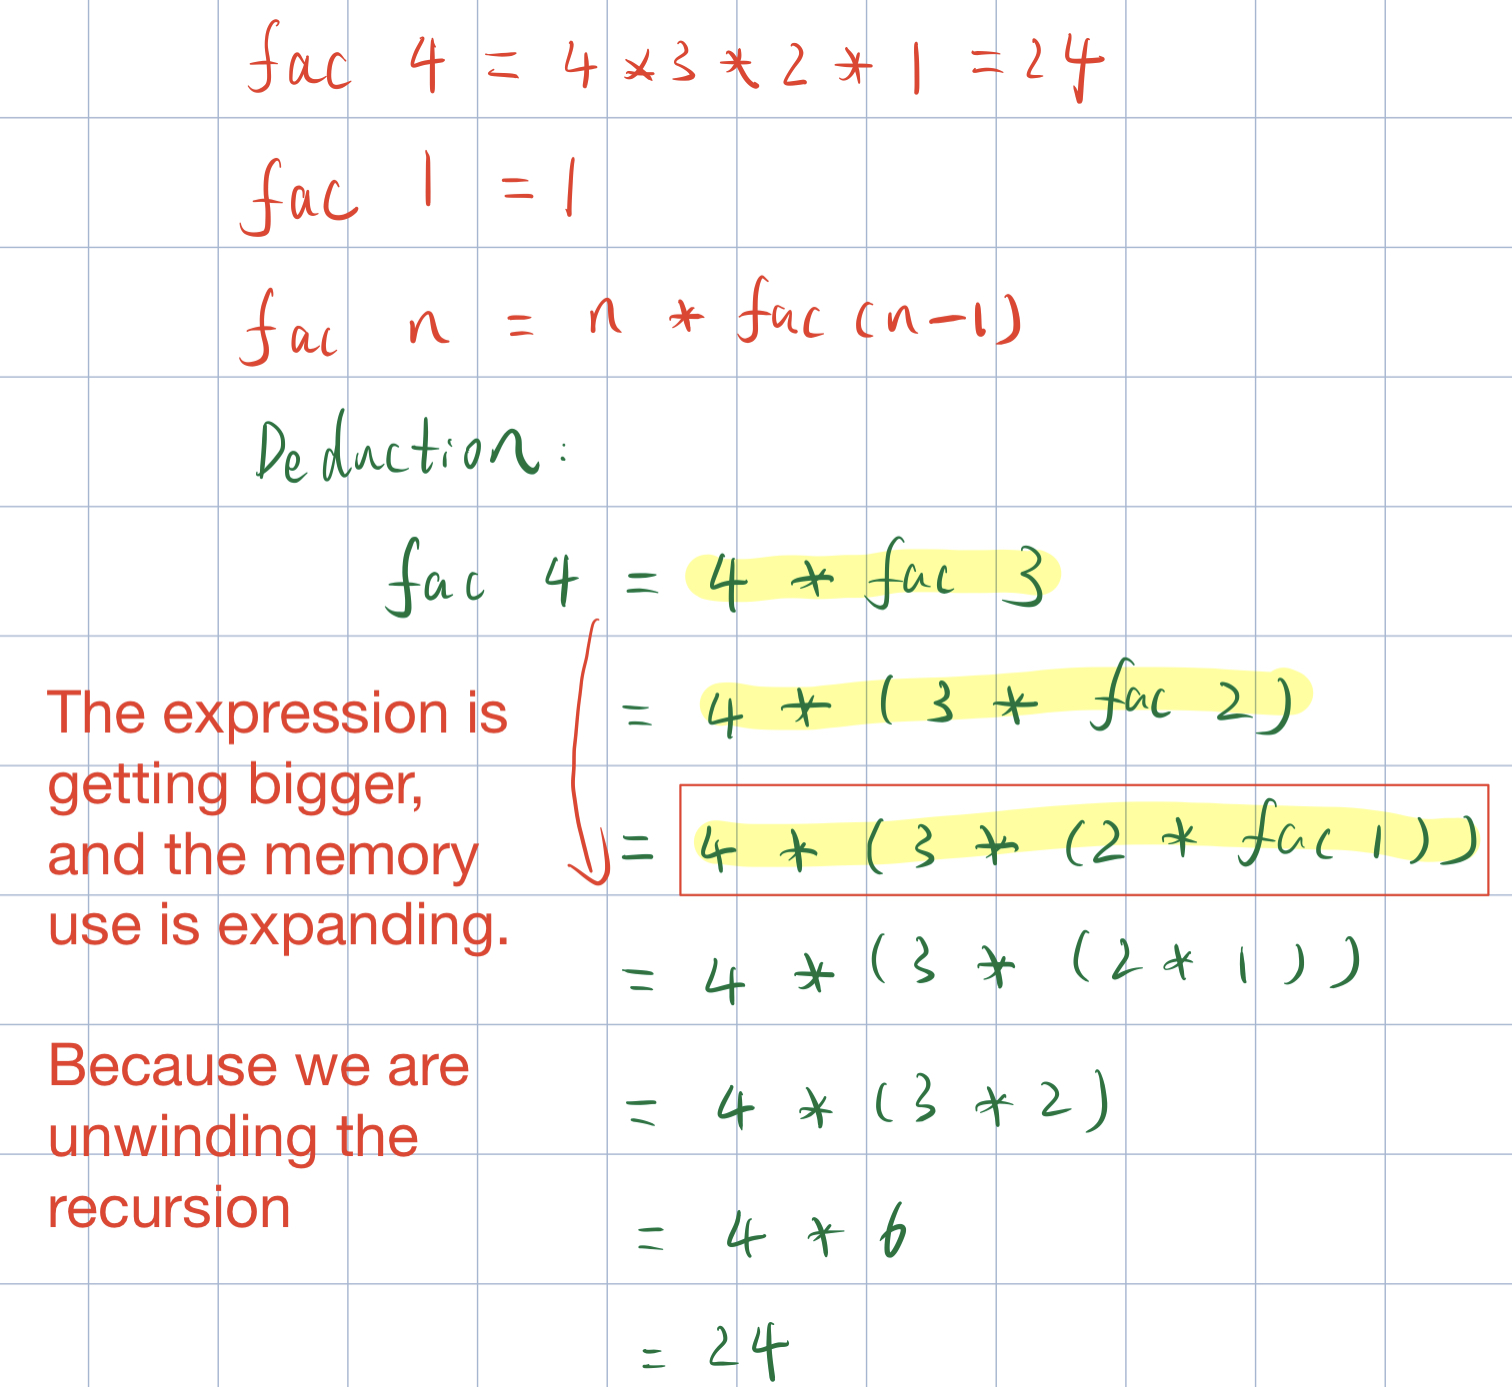 fac 4 = 4 * 3 * 2 * 1 = 24
fac 1 = 1
fac n = n * fac (n-1)
Deduction:
fac 4 = 4 * fac 3
= 4 * (3 * fac 2)
= 4 * (3 * (2 * fac 1))
= 4 * (3 * (2 * 1))
= 4 * (3 * 2)
= 4 * 6
= 24
The expression is
getting bigger,
and the memory
use is expanding.
Because we are
unwinding the
recursion